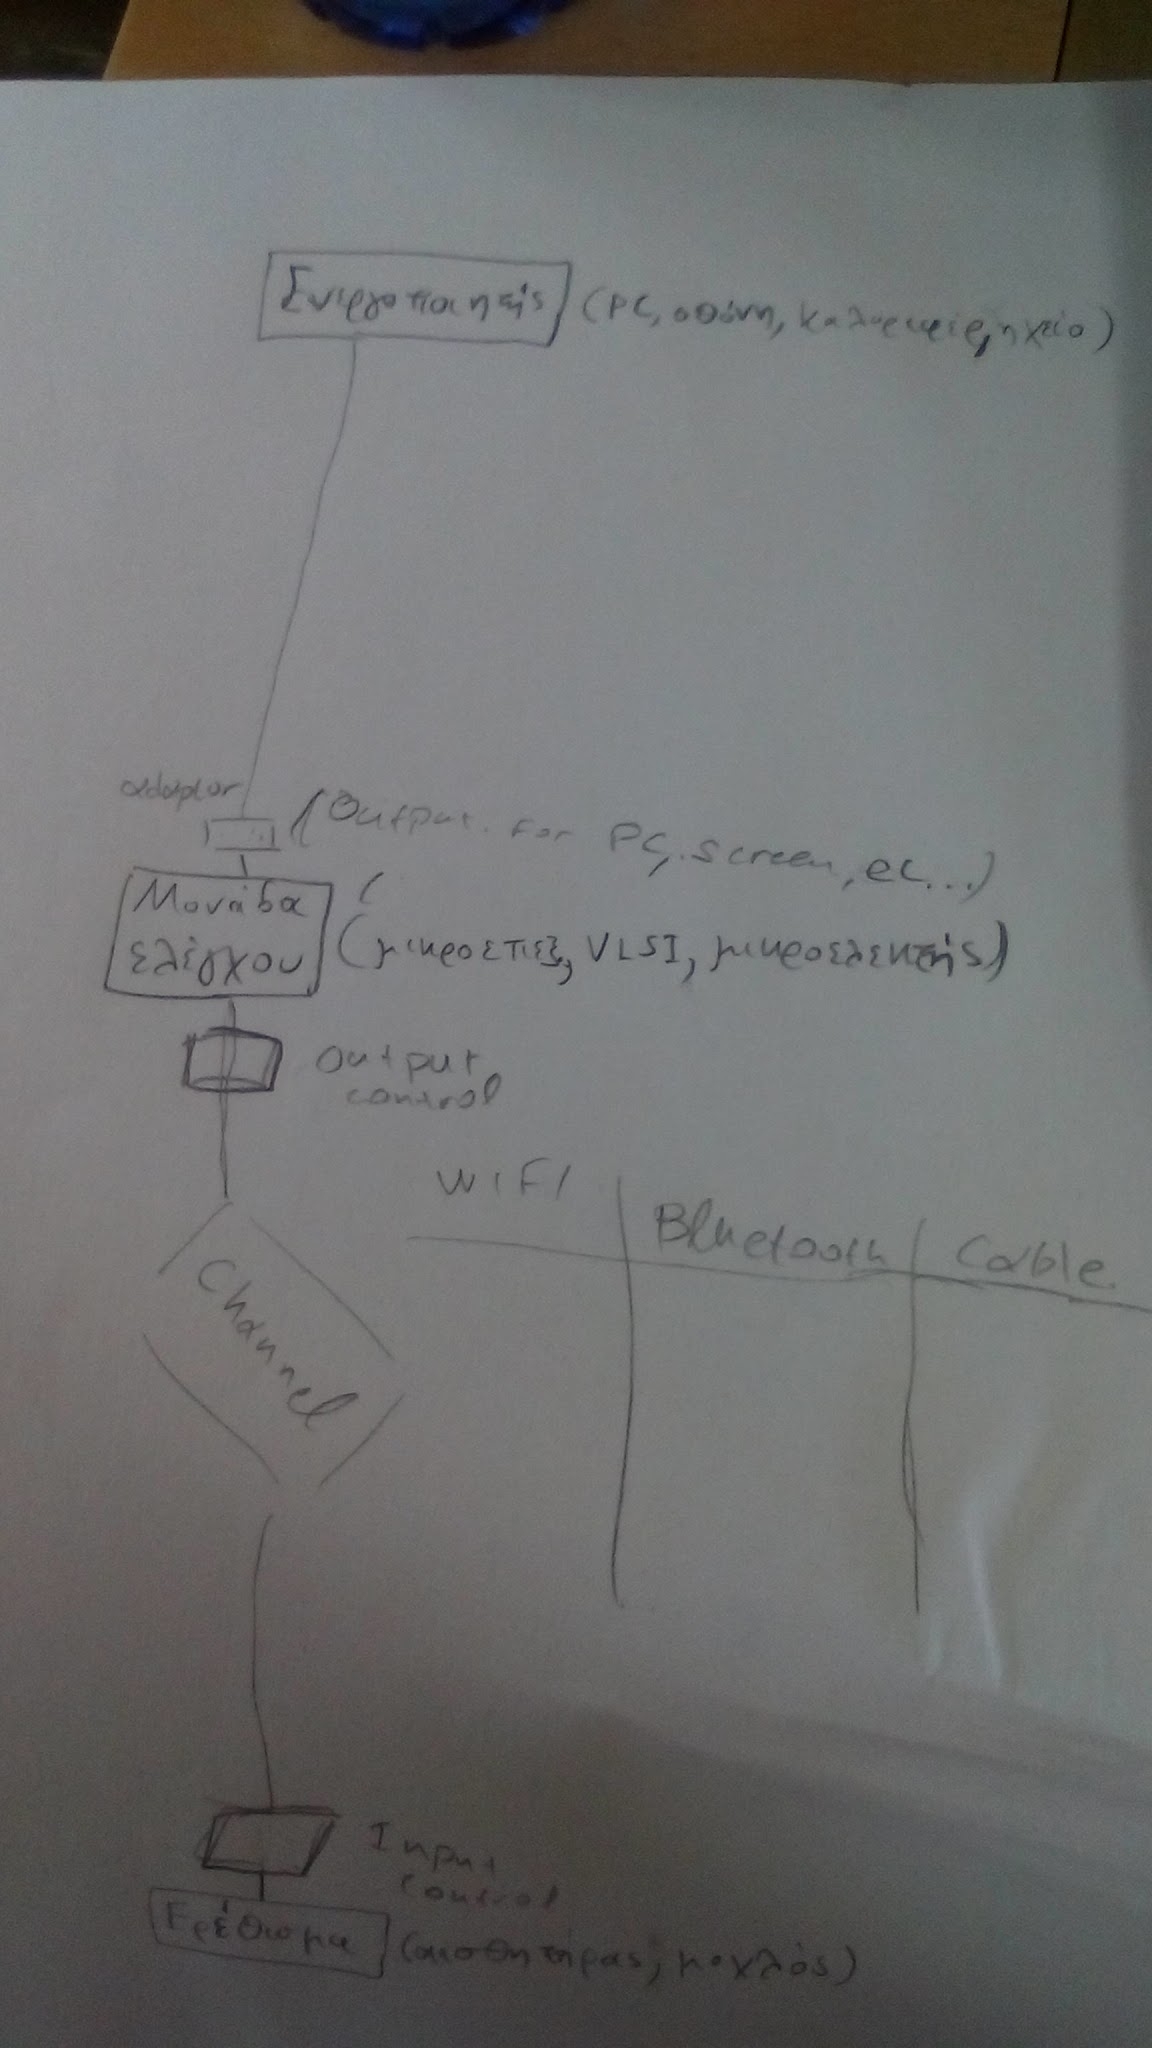 Ενεργοποιητής (PC, οθόνη, καλοριφέρ, ηχείο)
adaptor
(Output for PC, screen, ec...)
Μονάδα
ελέγχου
(μικροεπεξ, VLSI, μικροελεκτής)
Output
control
WiFi
Bluetooth
Cable
Channel
Input
control
Ερέθισμα (αισθητήρας, μοχλός)